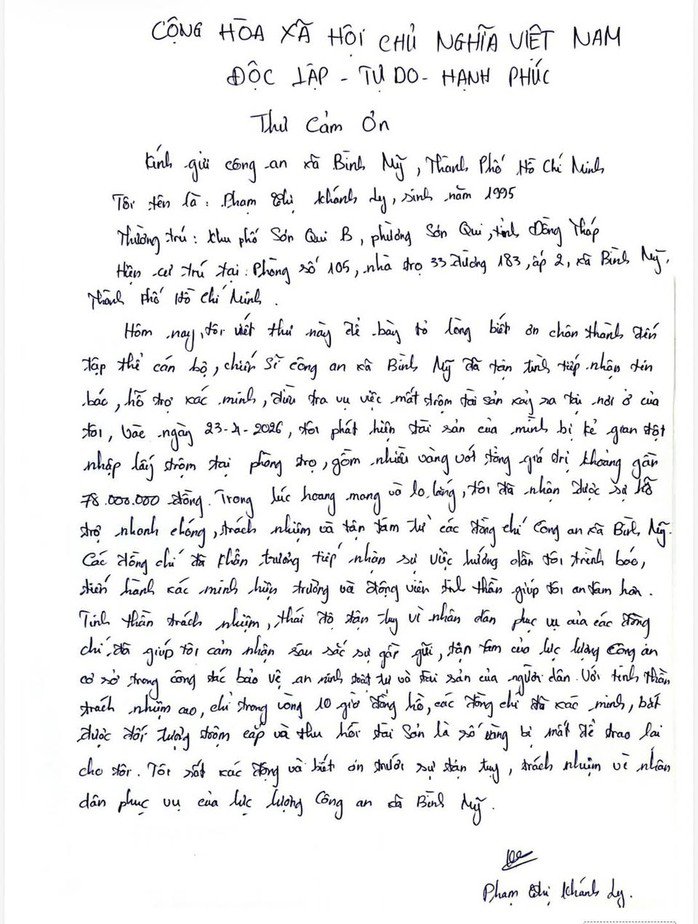 CỘNG HÒA XÃ HỘI CHỦ NGHĨA VIỆT NAM
ĐỘC LẬP - TỰ DO - HẠNH PHÚC
Thư Cảm Ơn
Kính gửi công an xã Bình Mỹ, Thành Phố Hồ Chí Minh
Tôi tên là : Phạm Thị Khánh Ly, sinh năm 1995
Thường trú : Khu phố Sơn Qui B, phường Sơn Qui, tỉnh Đồng Tháp
Hiện cư trú tại : Phòng số 105, nhà trọ 33 đường 183, ấp 2, xã Bình Mỹ,
Thành Phố Hồ Chí Minh.
Hôm nay, tôi viết thư này để bày tỏ lòng biết ơn chân thành đến
tập thể cán bộ, chiến sĩ công an xã Bình Mỹ đã tận tình tiếp nhận tin
báo, hỗ trợ xác minh, điều tra vụ việc mất trộm tài sản xảy ra tại nơi ở của
tôi, vào ngày 23-4-2026, tôi phát hiện tài sản của mình bị kẻ gian đột
nhập lấy trộm tại phòng trọ, gồm nhiều vàng với tổng giá trị khoảng gần
78.000.000 đồng. Trong lúc hoang mang và lo lắng, tôi đã nhận được sự hỗ
trợ nhanh chóng, trách nhiệm và tận tâm từ các đồng chí Công an xã Bình Mỹ.
Các đồng chí đã khẩn trương tiếp nhận sự việc, hướng dẫn tôi trình báo,
tiến hành xác minh hiện trường và động viên tinh thần giúp tôi an tâm hơn.
Tinh thần trách nhiệm, thái độ tận tụy vì nhân dân phục vụ của các đồng
chí, đã giúp tôi cảm nhận sâu sắc sự gần gũi, tận tâm của lực lượng Công an
cơ sở trong công tác bảo vệ an ninh trật tự và tài sản của người dân. Với tinh thần
trách nhiệm cao, chỉ trong vòng 10 giờ đồng hồ, các đồng chí đã xác minh, bắt
được đối tượng trộm cắp và thu hồi tài sản là số vàng bị mất để trao lại
cho tôi. Tôi rất xúc động và biết ơn trước sự tận tụy, trách nhiệm vì nhân
dân phục vụ của lực lượng Công an xã Bình Mỹ.
Phạm Thị Khánh Ly.